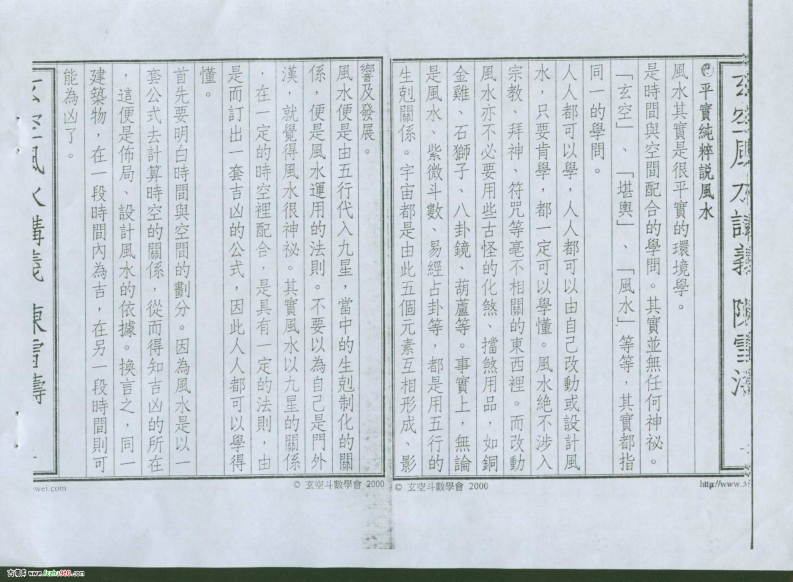 玄空風水講義 陳雪濤
平實純粹說風水
風水其實是很平實的環境學。
是時間與空間配合的學問。其實並無任何神祕。
「玄空」、「堪輿」、「風水」等等，其實都指
同一的學問。
人人都可以學，人人都可以由自己改動或設計風
水，只要肯學，都一定可以學懂。風水絕不涉入
宗教、拜神、符咒等毫不相關的東西裡。而改動
風水亦不必要用些古怪的化煞、擋煞用品，如銅
金雞、石獅子、八卦鏡、葫蘆等。事實上，無論
是風水、紫微斗數、易經占卦等，都是用五行的
生剋關係。宇宙都是由此五個元素互相形成、影
http://www.
© 玄空斗數學會 2000
響及發展。
風水便是由五行代入九星，當中的生剋制化的關
係，便是風水運用的法則。不要以為自己是門外
漢，就覺得風水很神祕。其實風水以九星的關係
，在一定的時空裡配合，是具有一定的法則，由
是而訂出一套吉凶的公式，因此人人都可以學得
懂。
首先要明白時間與空間的劃分。因為風水是以一
套公式去計算時空的關係，從而得知吉凶的所在
，這便是佈局、設計風水的依據。換言之，同一
建築物，在一段時間內為吉，在另一段時間則可
能為凶了。
© 玄空斗數學會 2000
玄空風水講義 陳雪濤
wei.com